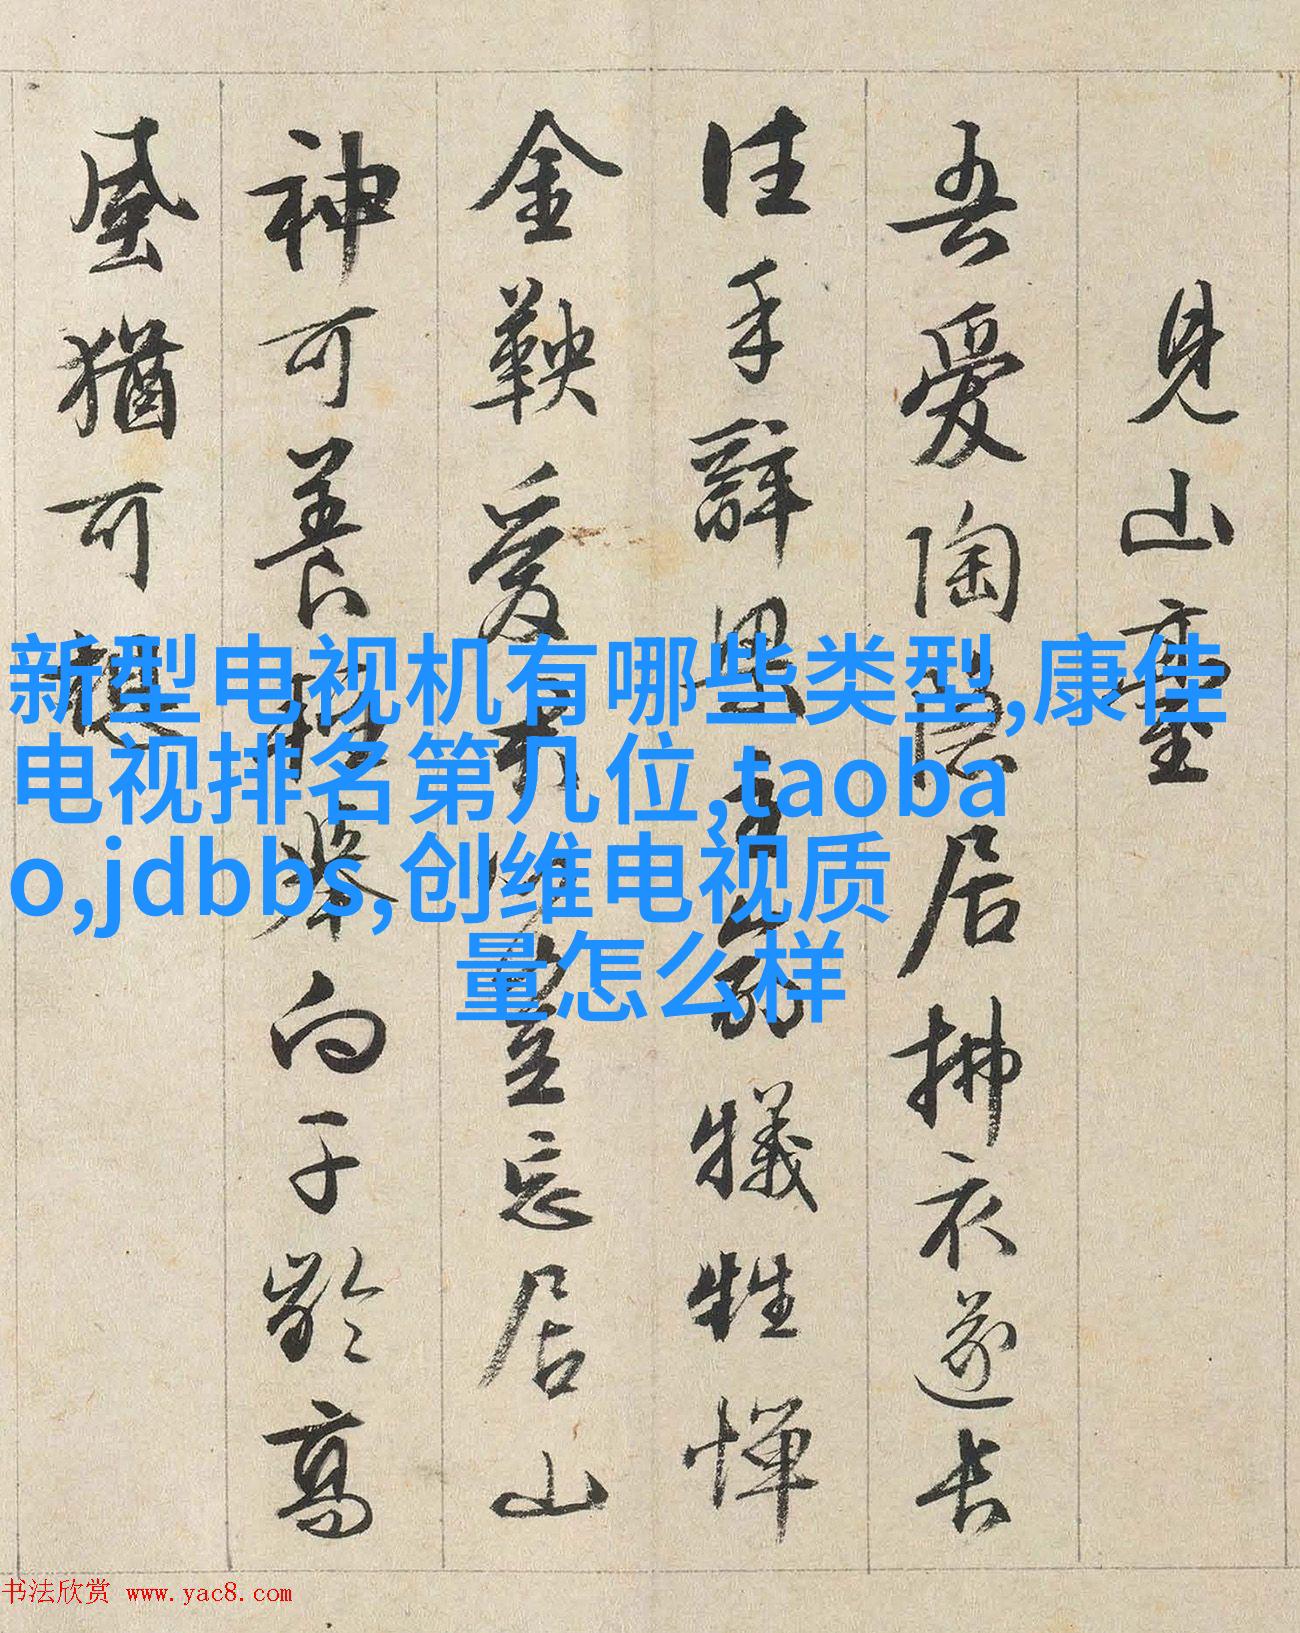 見山臺
吾愛陶隱居拂衣遂長
往手辭 主 犧牲憚
金鞅 忘居山
神可養 向千齡高
風猶可
新型电视机有哪些类型,康佳
电视排名第几位,taoba
o,jdbbs,创维电视质
量怎么样
书法欣赏 www.yac8.com